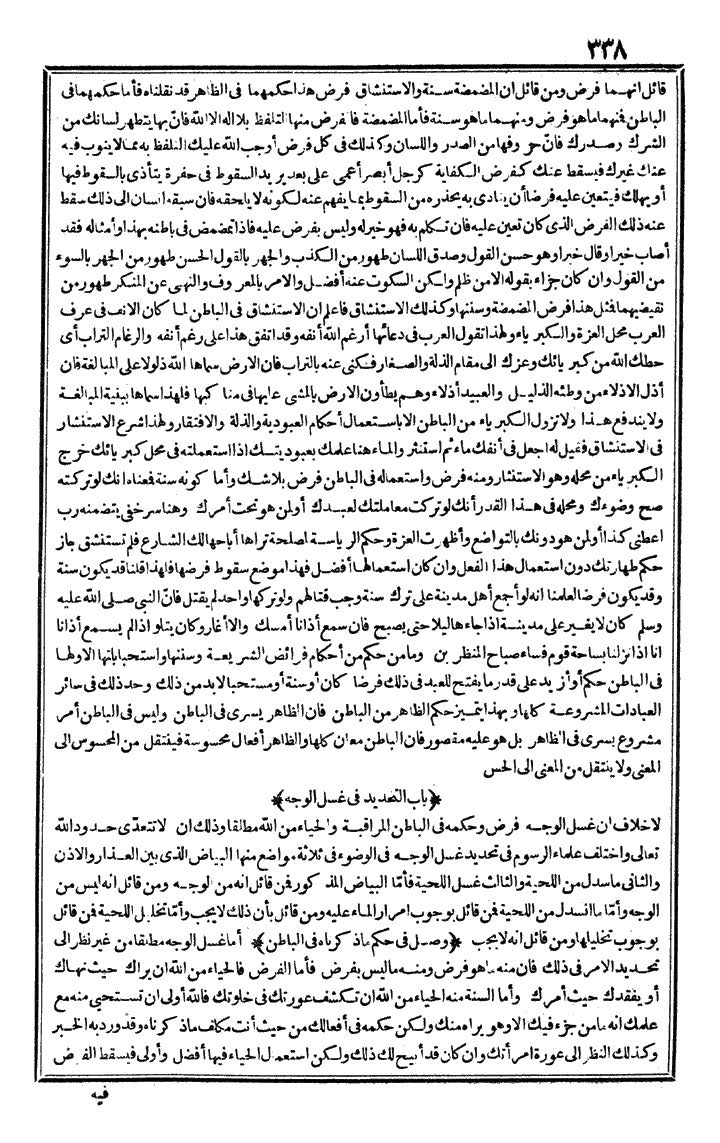 ٣٣٨
قائل انهما فرض ومن قائل ان المضمضة سنة والاستنشاق فرض هذا حكمهما فى الظاهر قد نقلناه فأما حكمهما فى
الباطن فمنهما ماهو فرض ومنهما ماهو سنة فأما المضمضة فالفرض منها التلفظ بلااله الاالله فان بها يتطهر لسانك من
الشرك وصدرك فان حروفها من الصدر واللسان وكذلك فى كل فرض أوجب الله عليك التلفظ به مما لا ينوب فيه
عنك غيرك فيسقط عنك كفرض الكفاية كرجل أبصر أعمى على بعد يريد السقوط فى حفرة يتأذى بالسقوط فيها
أو يهلك فيتعين عليه فرضا أن ينادى به يحذره من السقوط بما يفهم عنه لكونه لا يلحقه فان سبقه انسان الى ذلك سقط
عنه ذلك الفرض الذى كان تعين عليه فان تكلم به فهو خير له وليس بفرض عليه فاذا تمضمض فى باطنه بهذا وأمثاله فقد
أصاب خيرا وقال خيرا وهو حسن القول وصدق اللسان طهور من الكذب والجهر بالقول الحسن طهور من الجهر بالسوء
من القول وان كان جزاء بقوله الامن ظلم ولكن السكوت عنه أفضل والامر بالمعروف والنهى عن المنكر طهور من
نقيضيهما فمثل هذا فرض المضمضة وسننها وكذلك الاستنشاق فاعلم ان الاستنشاق فى الباطن لما كان الانف فى عرف
العرب محل العزة والكبرياء ولهذا تقول العرب فى دعائها أرغم الله أنفه وقد اتفق هذا على رغم أنفه والرغام التراب أى
حطك الله من كبريائك وعزك الى مقام الذلة والصغار فكنى عنه بالتراب فان الارض سماها الله ذلولا على المبالغة فان
أذل الاذلاء من وطئه الذليل والعبيد أذلاء وهم يطأون الارض بالمشى عليها فى مناكبها فلهذا سماها ببنية المبالغة
ولا يندفع هذا ولا تزول الكبرياء من الباطن الا باستعمال أحكام العبودية والذلة والافتقار ولهذا شرع الاستنثار
فى الاستنشاق فقيل له اجعل فى أنفك ماء ثم استنثر والماء هنا علمك بعبوديتك اذا استعملته فى محل كبريائك خرج
الكبرياء من محله وهو الاستنثار ومنه فرض واستعماله فى الباطن فرض بلا شك وأما كونه سنة فمعناه انك لو تركته
صح وضوءك ومحله فى هذا القدر أنك لو تركت معاملتك لعبدك أو لمن هو تحت أمرك وهنا سر خفى يتضمنه رب
اعطنى كذا أو لمن هو دونك بالتواضع وأظهرت العزة وحكم الرياسة لمصلحة تراها أباحها لك الشارع فلم تستنشق جاز
حكم طهارتك دون استعمال هذا الفعل وان كان استعمالها أفضل فهذا موضع سقوط فرضها فلهذا قلنا قد يكون سنة
وقد يكون فرضا لعلمنا انه لو أجمع أهل مدينة على ترك سنة وجب قتالهم ولو تركها واحد لم يقتل فان النبى صلى الله عليه
وسلم كان لا يغير على مدينة اذا جاءها ليلا حتى يصبح فان سمع أذانا أمسك والا أغار وكان يتلو اذا لم يسمع أذانا
انا اذا نزلنا بساحة قوم فساء صباح المنذرين وما من حكم من أحكام فرائض الشريعة وسننها واستحباباتها الاولها
فى الباطن حكم أو أزيد على قدر ما يفتح للعبد فى ذلك فرضا كان أوسنة أو مستحبا لابد من ذلك وحد ذلك فى سائر
العبادات المشروعة كلها وبهذا يتميز حكم الظاهر من الباطن فان الظاهر يسرى فى الباطن وليس فى الباطن أمر
مشروع يسرى فى الظاهر بل هو عليه مقصور فان الباطن معان كلها والظاهر أفعال محسوسة فينتقل من المحسوس الى
المعنى ولا ينتقل من المعنى الى الحس
﴿باب التحديد فى غسل الوجه﴾
لاخلاف ان غسل الوجه فرض وحكمه فى الباطن المراقبة والحياء من الله مطلقا وذلك ان لا تتعدى حدود الله
تعالى واختلف علماء الرسوم فى تحديد غسل الوجه فى الوضوء فى ثلاثة مواضع منها البياض الذى بين العذار والاذن
والثانى ماسدل من اللحية والثالث غسل اللحية فأما البياض المذكور فمن قائل انه من الوجه ومن قائل انه ليس من
الوجه وأما ما انسدل من اللحية فمن قائل بوجوب امرار الماء عليه ومن قائل بأن ذلك لا يجب وأما تخليل اللحية فمن قائل
بوجوب تخليلها ومن قائل انه لا يجب ﴿وصل فى حكم ما ذكرناه فى الباطن﴾ أما غسل الوجه مطلقا من غير نظر الى
تحديد الامر فى ذلك فان منه ماهو فرض ومنه ماليس بفرض فأما الفرض فالحياء من الله ان يراك حيث نهاك
أو يفقدك حيث أمرك وأما السنة منه الحياء من الله ان تكشف عورتك فى خلوتك فالله أولى ان تستحيى منه مع
علمك انه ما من جزء فيك الا وهو يراه منك ولكن حكمه فى أفعالك من حيث أنت مكلف ماذكرناه وقد ورد به الخبر
وكذلك النظر الى عورة امرأتك وان كان قد أبيح لك ذلك ولكن استعمال الحياء فيها أفضل وأولى فيسقط الفرض
فيه